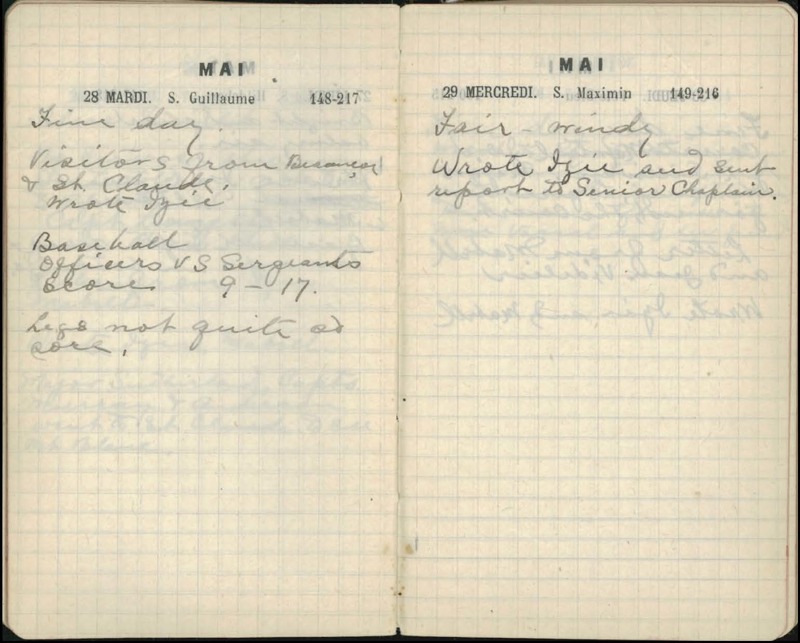 MAI
28 MARDI. S. Guillaume 148-217
Fine day.
Visitors from Besançon
& St. Claude.
Wrote Izie
Baseball
Officers VS Sergeants
Score 9 - 17.
Legs not quite so
sore.
MAI
29 MERCREDI. S. Maximin 149-216
Fair - windy
Wrote Izie and sent
report to Senior Chaplain.